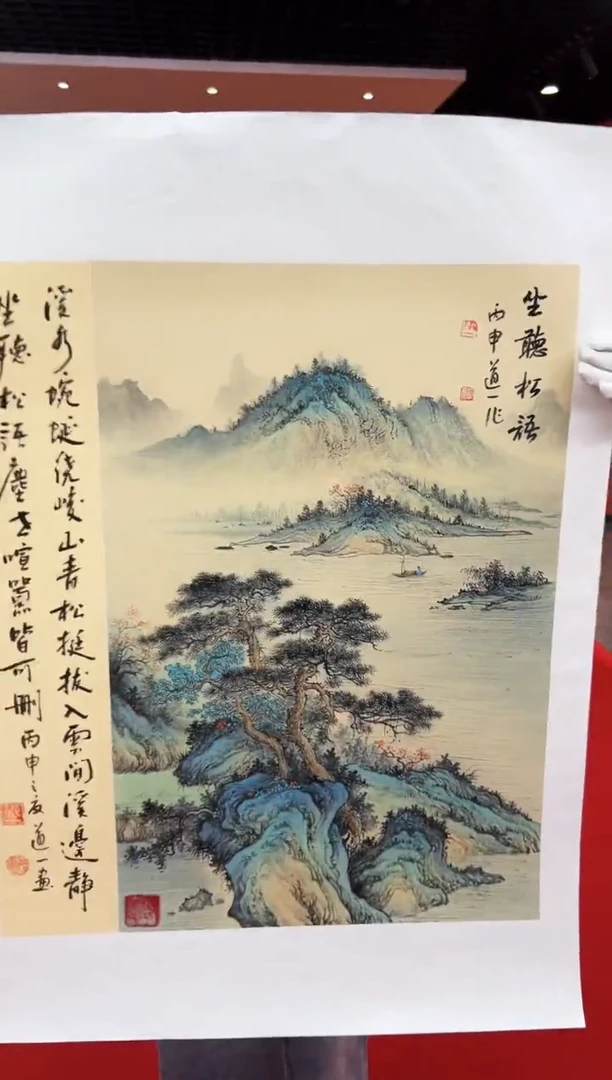 坐聽松語
丙申道一作
溪水蜿蜒繞峻山青松挺拔入雲間溪邊靜
坐聽松語塵世喧囂皆可刪丙申之夏道一畫